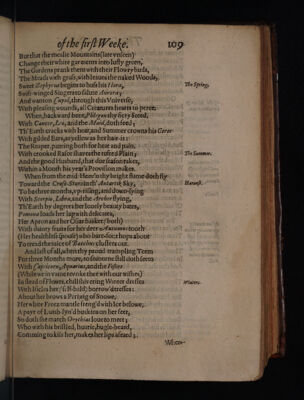 of the first Weeke. 109
But that the mcolie Mountains (late vnseen)
Change their white garments into lusty green,
The Gardens prank them with their Flowry buds,
The Meads with grass, with leaues the naked Woods,
Sweet Zephyrus begins to buss his Flora, The Spring.
Swift-winged Singers to salute Aurora;
And wanton Cupid, through this Vniverse,
With pleasing wounds, all Creatures hearts to perce.
When, backward bent, Phlegon his fiery Steed,
With Cancer, Leo, and the Maid, doth feed;
Th' Earth cracks with heat, and Summer crowns his Ceres
With gilded Ears, as yellow as her hair-is:
The Reaper, panting both for heat and pain,
With crooked Rasor shaues the tufted Plain; The Summer.
And the good Husband, that due season takes,
Within a Month his year's Provision makes.
When from the mid-Heav'n thy bright flame doth fly
Toward the Cross-Stars in th' Antartik Sky, Harvest.
To be three months, vp-rising, and down-lying
With Scorpio, Libra, and the Archer flying,
Th' Earth by degrees her louely beauty bates,
Pomona loads her lap with delicates,
Her Apron and her Osiar basket (both)
With dainty fruits for her deer Autumns tooth
(Her healthless spouse) who bare-foot hops about
To tread the iuice of Bacchus clusters out.
And last of all, when thy proud trampling Teem
For three Months more, to soiourne still doth seem
With Capricorn, Aquarius, and the Fishes
(While we in vain revoke thee with our wishes)
In steed of Flowrs, chill shivering Winter dresses Winter.
With Isicles her (self-bald) borrow'd tresses:
About her brows a Periwig of Snowe,
Her white Freez mantle freng'd with Ice belowe,
A payr of Lamb-lyn'd buskins on her feet,
So doth she march Orythias loue to meet;
Who with his bristled, hoarie, bugle-beard,
Comming to kiss her, makes her lips afeard;